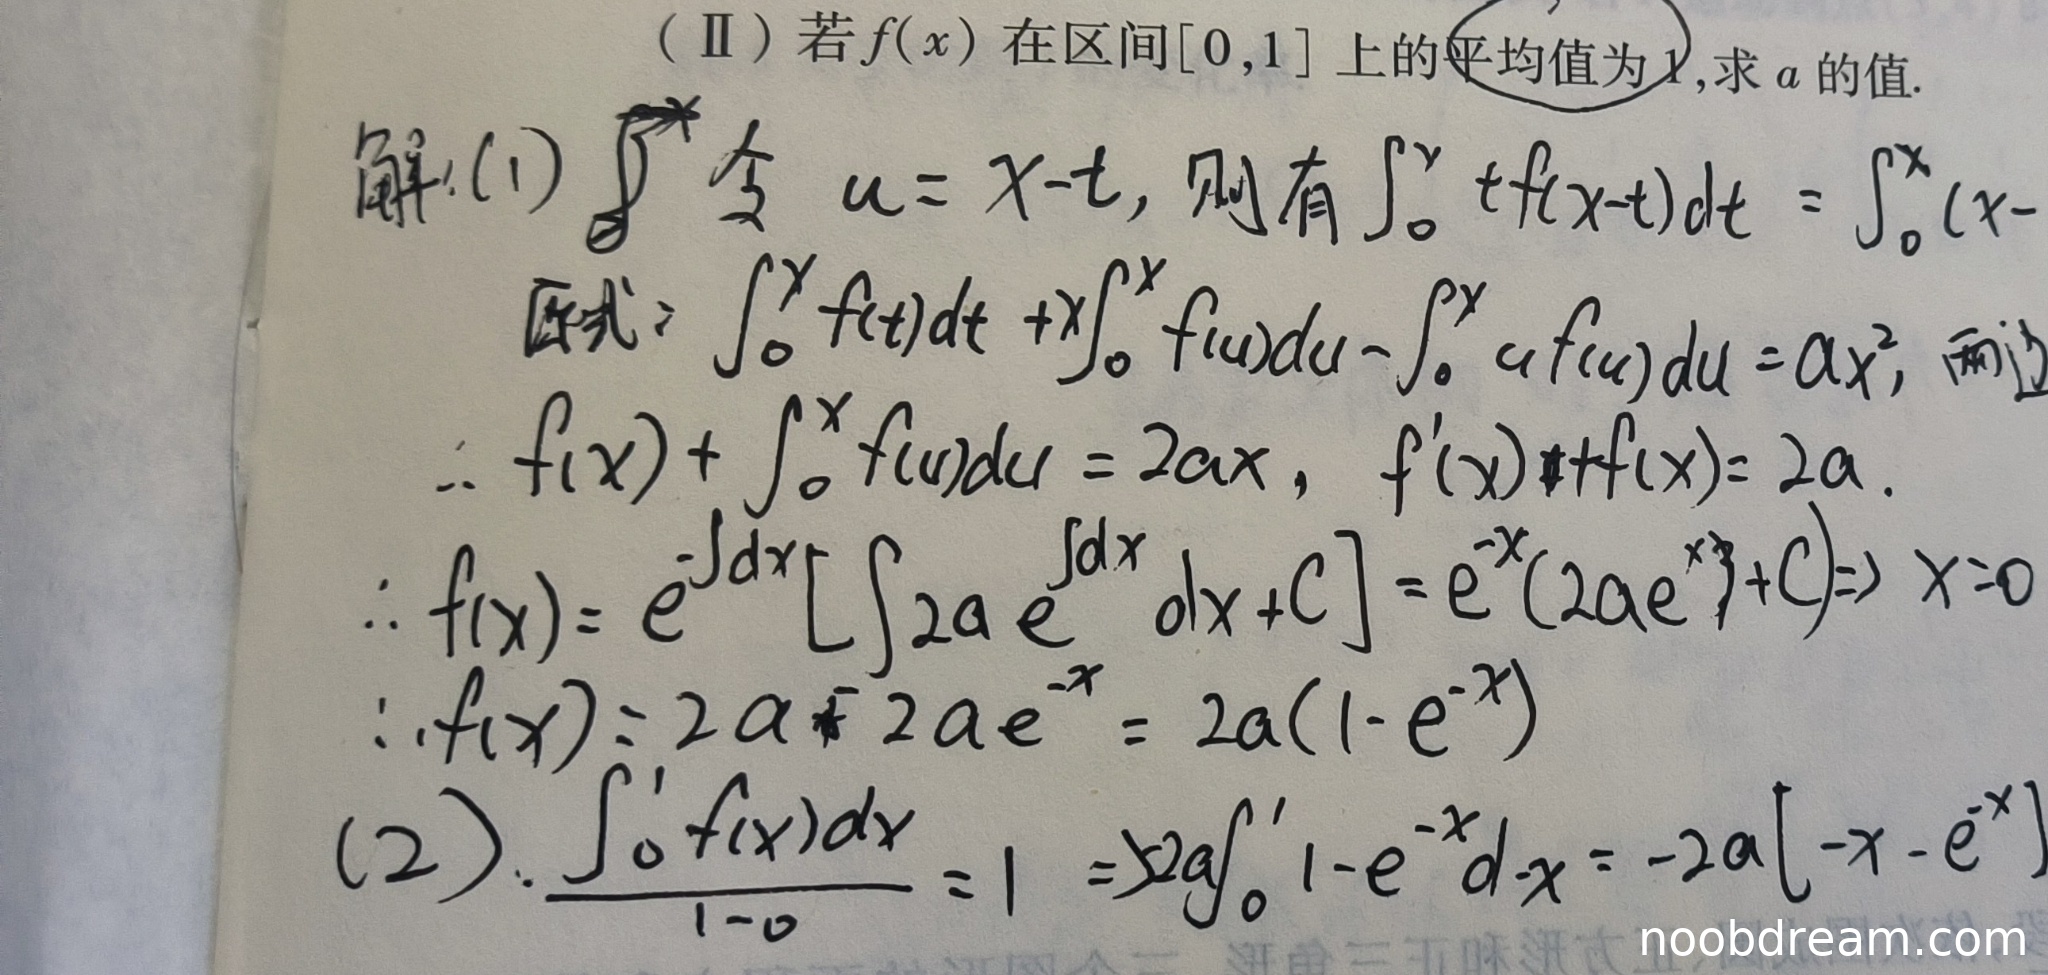 (Ⅱ)若f(x)在区间[0,1]上的平均值为1,求a的值.
解:(1) 令 u=x-t, 则有 ∫₀ˣ tf(x-t)dt = ∫₀ˣ (x-
原式: ∫₀ˣ f(t)dt + x∫₀ˣ f(u)du - ∫₀ˣ uf(u)du = ax², 两边
∴ f(x) + ∫₀ˣ f(u)du = 2ax, f'(x)+f(x)=2a.
∴ f(x) = e^{-∫dx}[∫2ae^{∫dx}dx+C] = e^{-x}(2ae^{x}+C) => x=0
∴ f(x) = 2a - 2ae^{-x} = 2a(1-e^{-x})
(2). ∫₀¹ f(x)dx / (1-0) = 1 => 2a∫₀¹ 1-e^{-x}dx = -2a[-x-e^{-x}]
noobdream.com